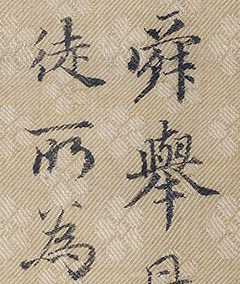 舜舉
徒所為